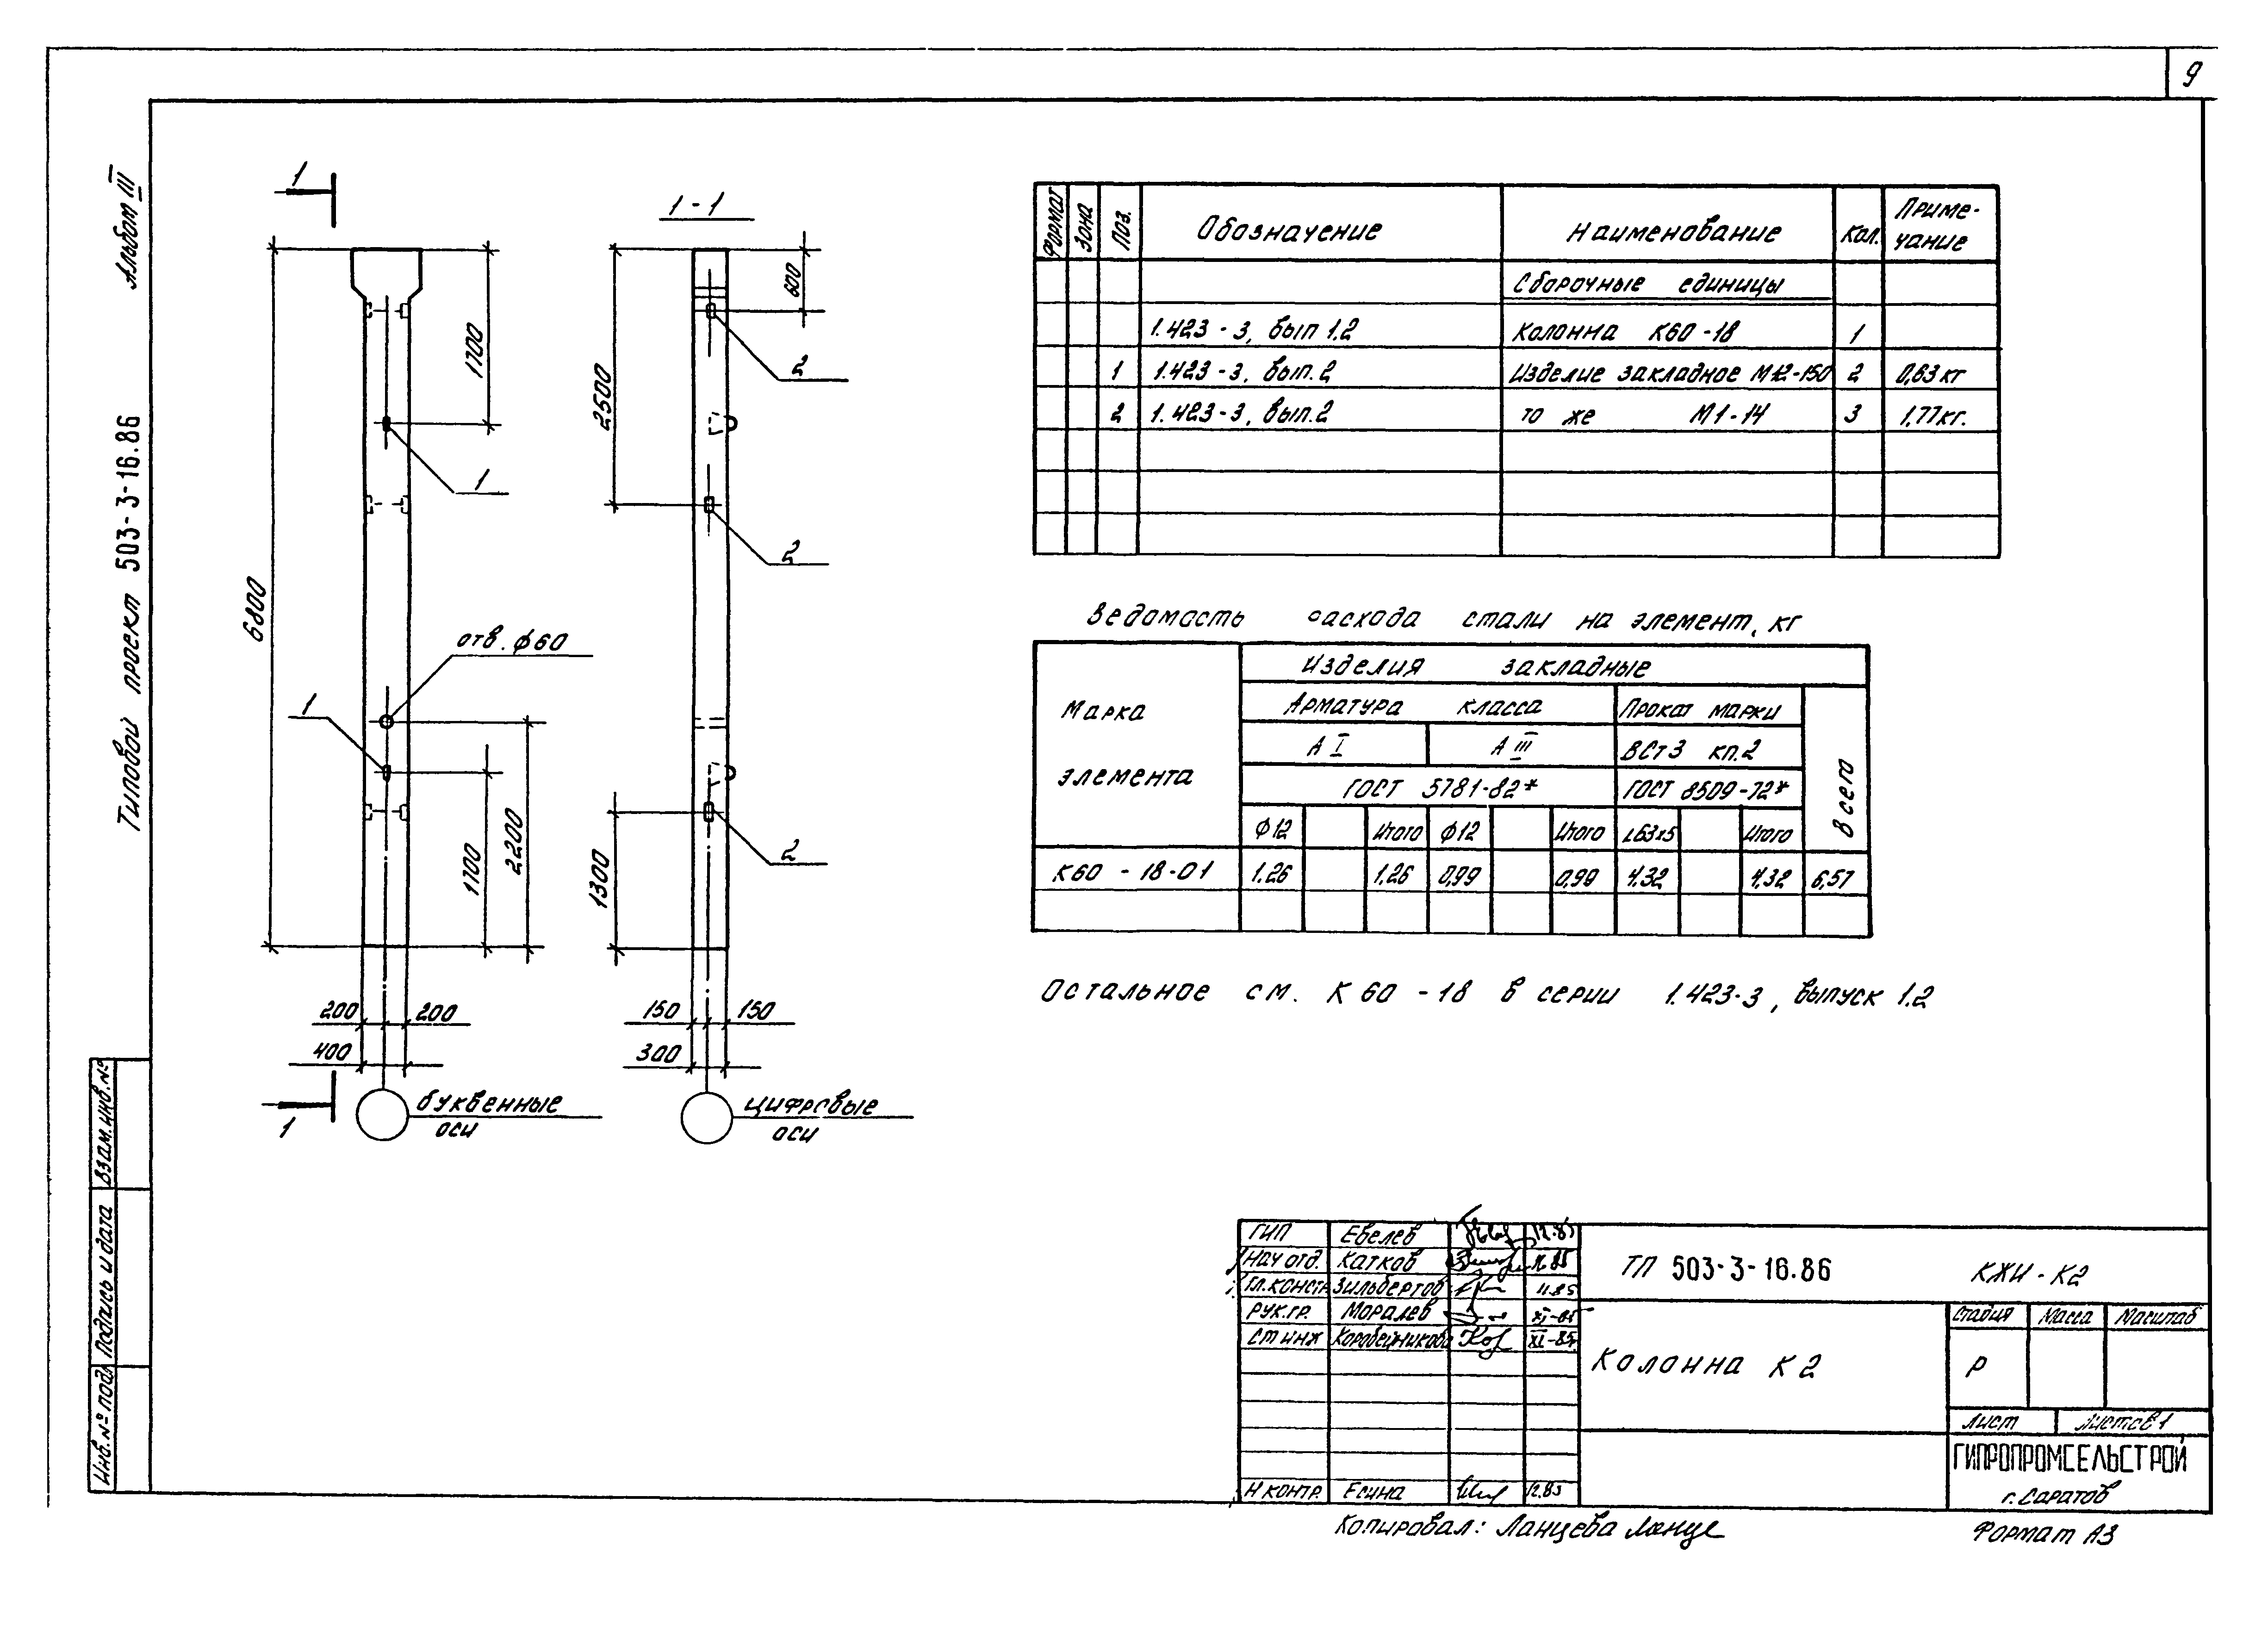 9
Альбом III
Типовой проект 503-3-16.86
Взам.инв.№
Подпись и дата
Инв.№ подл
1
1-1
6800
1700
1
отв. ф60
1
1700
2200
200 200
400
буквенные
оси
1
2500
600
2
2
2
1300
150 150
300
цифровые
оси
Формат Зона Поз. Обозначение Наименование Кол. Приме-
чание
Сборочные единицы
1.423-3, вып 1.2 Колонна К60-18 1
1 1.423-3, вып.2 Изделие закладное М12-150 2 0,63кг
2 1.423-3, вып.2 то же М1-14 3 1,77кг.
Ведомость расхода стали на элемент, кг
Марка
элемента
Изделия закладные
Арматура класса Прокат марки
А I А III ВСт3 кп.2
ГОСТ 5781-82* ГОСТ 8509-72*
Всего
ф12 Итого ф12 Итого L63х5 Итого
К60-18-01 1.26 1.26 0,99 0,99 4.32 4,32 6,57
Остальное см. К60-18 в серии 1.423-3, выпуск 1.2
ГИП Евелев 12.85
Нач отд. Катков 12.85
Гл.констр Зильбертов 11.85
Рук.гр. Моралев XI-85
Ст инж Коробейникова XI-85
Н контр. Есина 12.85
ТП 503-3-16.86 КЖИ-К2
Колонна К2
Стадия Масса Масштаб
Р
Лист Листов 1
ГИПРОПРОМСЕЛЬСТРОЙ
г. Саратов
Копировал: Ланцева
Формат А3